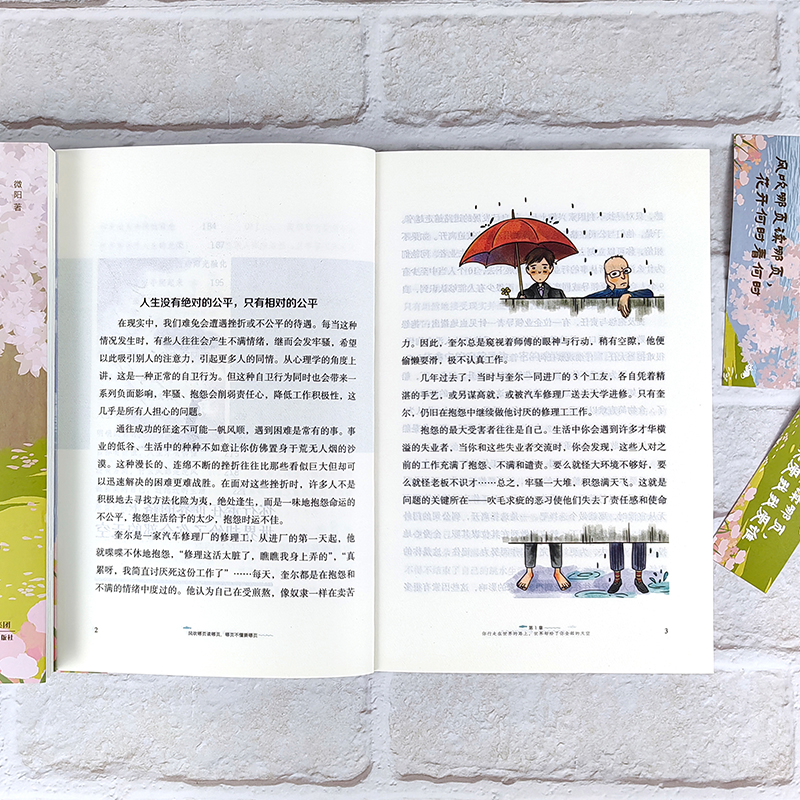 微阳 著
人生没有绝对的公平，只有相对的公平
在现实中，我们难免会遭遇挫折或不公平的待遇。每当这种
情况发生时，有些人往往会产生不满情绪，继而会发牢骚，希望
以此吸引别人的注意力，引起更多人的同情。从心理学的角度上
讲，这是一种正常的自卫行为。但这种自卫行为同时也会带来一
系列负面影响，牢骚、抱怨会削弱责任心，降低工作积极性，这
几乎是所有人担心的问题。
通往成功的征途不可能一帆风顺，遇到困难是常有的事。事
业的低谷、生活中的种种不如意让你仿佛置身于荒无人烟的沙
漠。这种漫长的、连绵不断的挫折往往比那些看似巨大但却可
以迅速解决的困难更难战胜。在面对这些挫折时，许多人不是
积极地去寻找方法化险为夷，绝处逢生，而是一味地抱怨命运的
不公平，抱怨生活给予的太少，抱怨时运不佳。
奎尔是一家汽车修理厂的修理工，从进厂的第一天起，他
就喋喋不休地抱怨，“修理这活太脏了，瞧瞧我身上弄的”，“真
累呀，我简直讨厌死这份工作了”……每天，奎尔都是在抱怨和
不满的情绪中度过的。他认为自己在受煎熬，像奴隶一样在卖苦
2
风吹哪页读哪页，哪页不懂撕哪页
力。因此，奎尔总是窥视着师傅的眼神与行动，稍有空隙，他便
偷懒耍滑，极不认真工作。
几年过去了，当时与奎尔一同进厂的 3 个工友，各自凭着精
湛的手艺，或另谋高就，或被汽车修理厂送去大学进修。只有奎
尔，仍旧在抱怨中继续做他讨厌的修理工工作。
抱怨的最大受害者往往是自己。生活中你会遇到许多才华横
溢的失业者，当你和这些失业者交流时，你会发现，这些人对之
前的工作充满了抱怨、不满和谴责。要么就怪大环境不够好，要么
就怪老板不识才……总之，牢骚一大堆，积怨满天飞。这就是
问题的关键所在——吹毛求疵的恶习使他们失去了责任感和使命
第 1 章
3
风吹哪页读哪页，
花开何时看何时
集团
版社